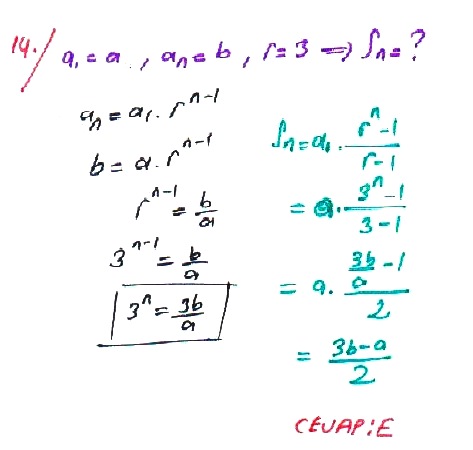 14./ a₁ = a , aₙ = b , r = 3 ⇒ Sₙ = ?
aₙ = a₁ . rⁿ⁻¹
b = a . rⁿ⁻¹
rⁿ⁻¹ = b/a
3ⁿ⁻¹ = b/a
3ⁿ = 3b/a
Sₙ = a₁ . (rⁿ-1)/(r-1)
= a . (3ⁿ-1)/(3-1)
= a . (3b/a - 1)/2
= (3b-a)/2
CEVAP:E